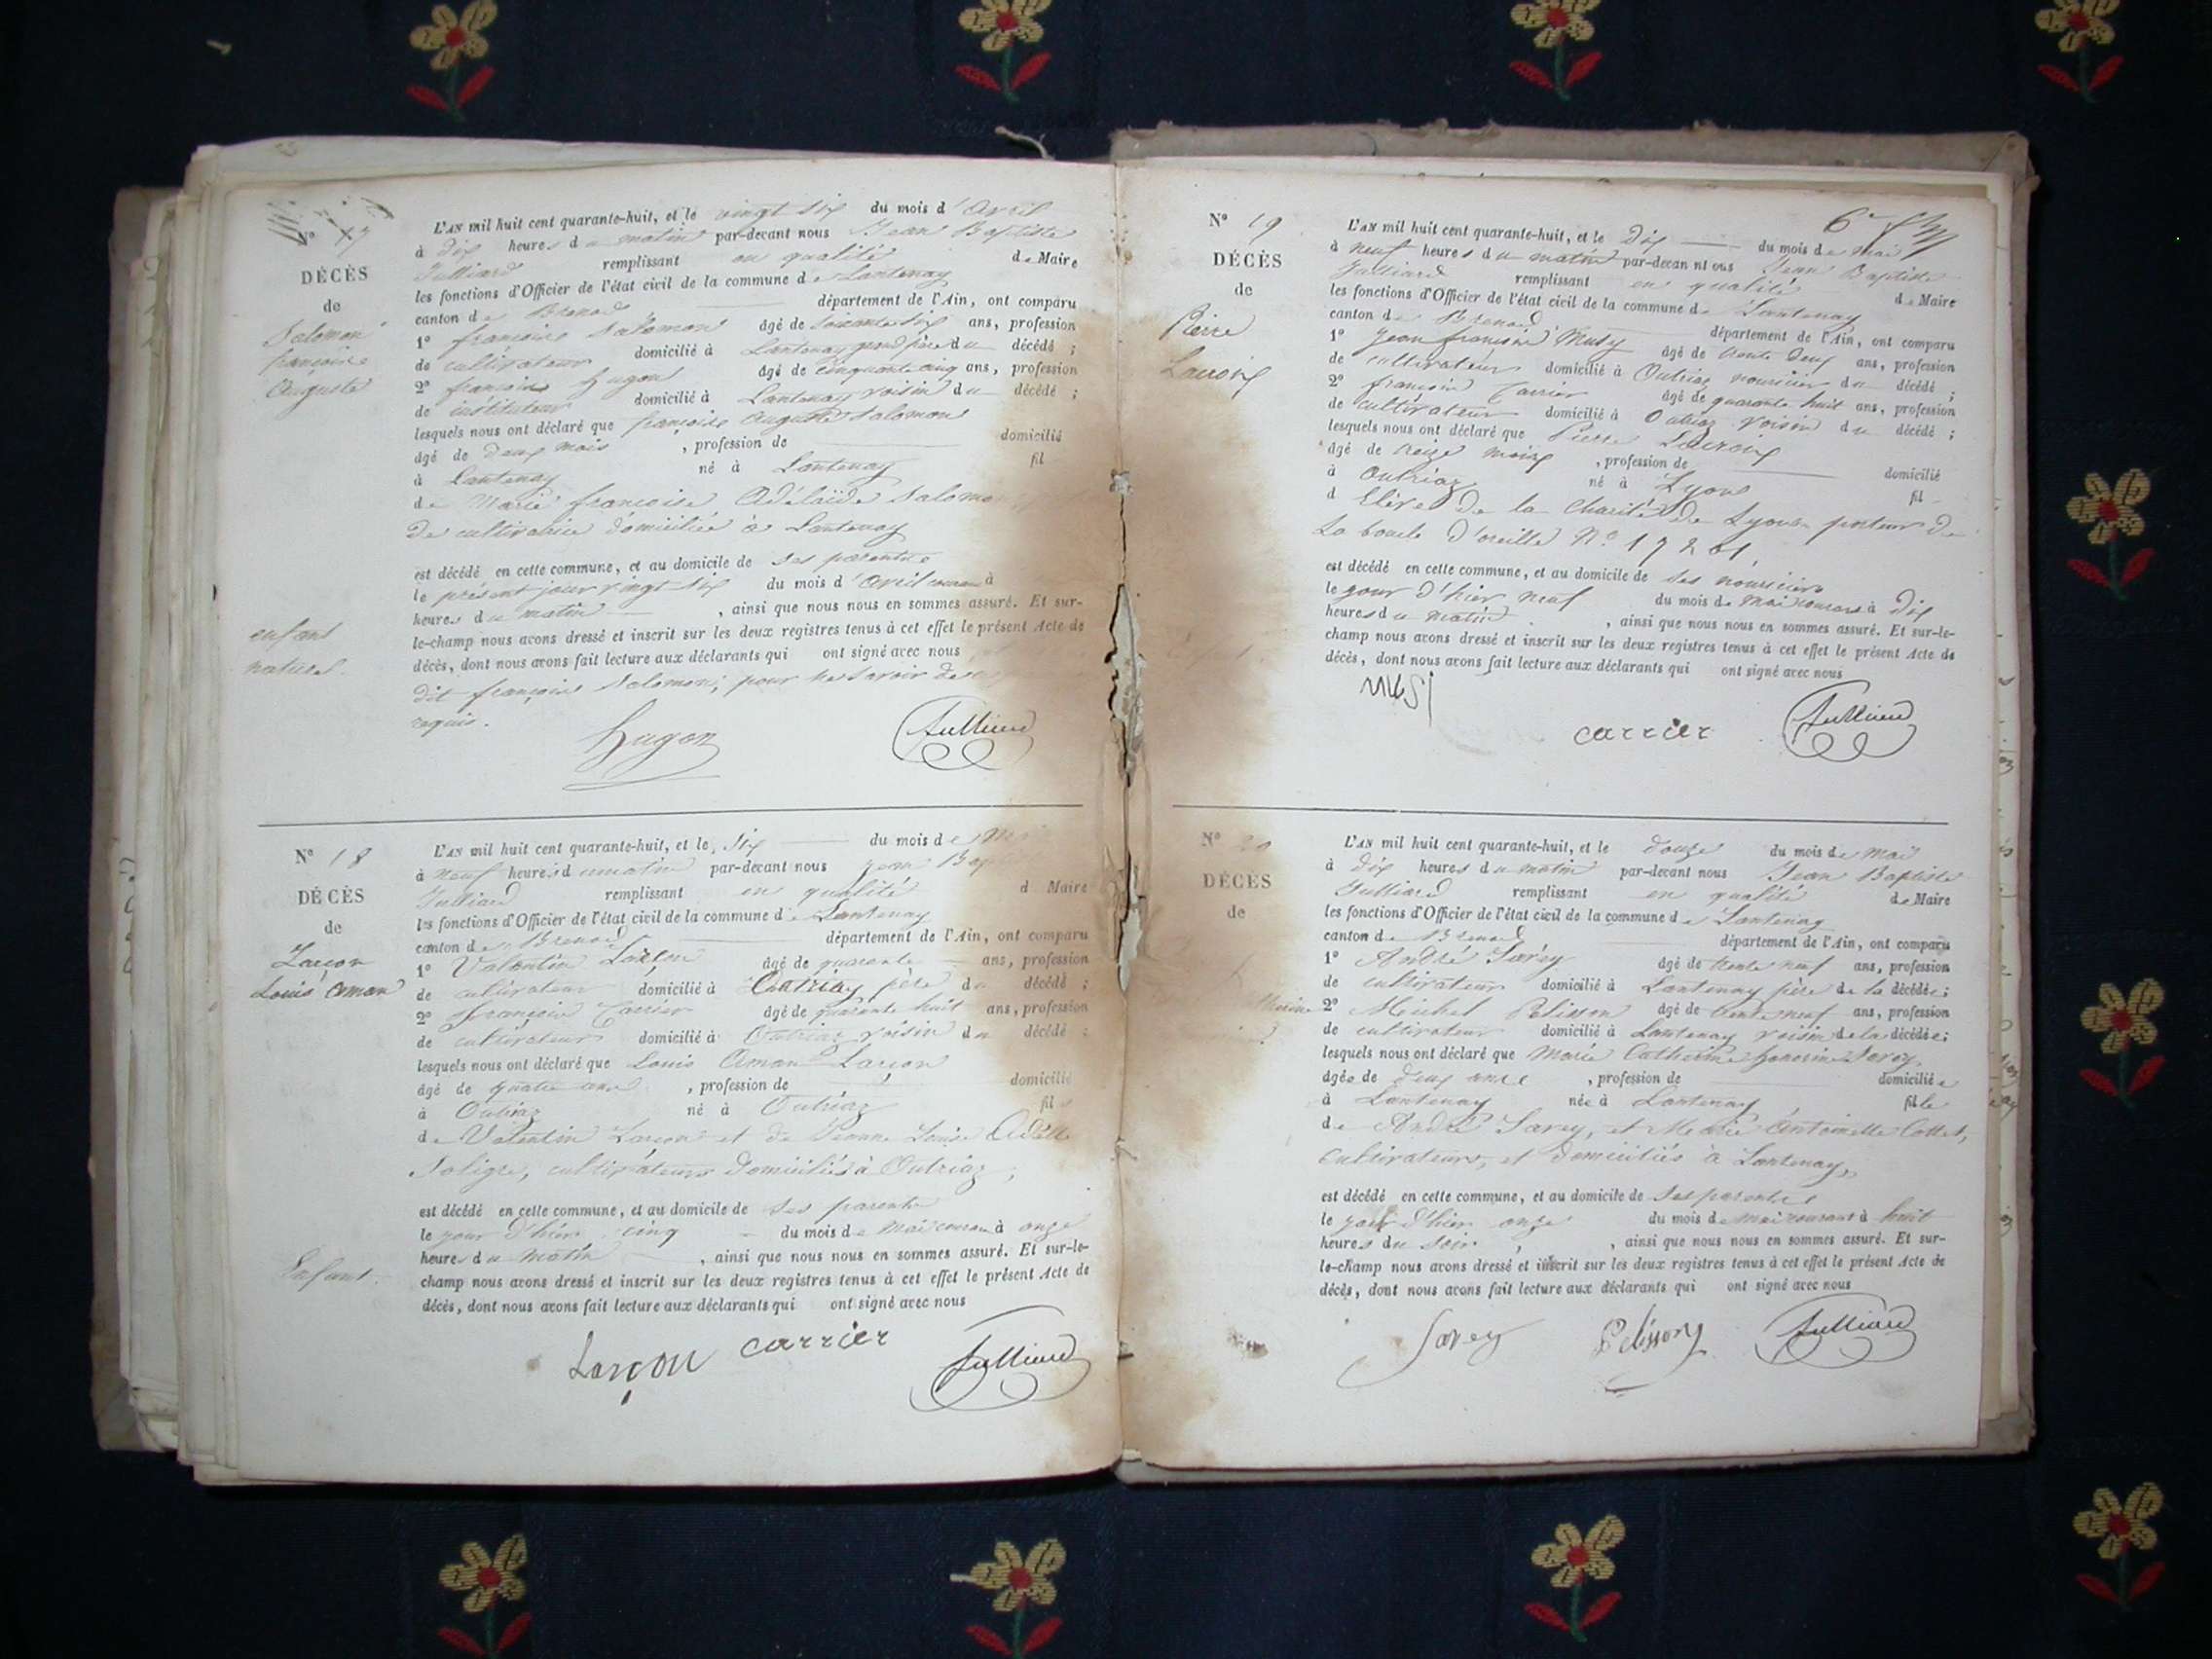 N° 17
DÉCÈS
de
Salomon
françois
Auguste
enfant
naturel.
L'AN mil huit cent quarante-huit, et le vingt six du mois d'Avril
à dix heures du matin par-devant nous Jean Baptiste
Julliard remplissant en qualité de Maire
les fonctions d'Officier de l'état civil de la commune de Lantenay
canton de Brenod département de l'Ain, ont comparu
1° françois Salomon âgé de soixante six ans, profession
de cultivateur domicilié à Lantenay grand père du décédé ;
2° françois hugon âgé de cinquante cinq ans, profession
de instituteur domicilié à Lantenay voisin du décédé ;
lesquels nous ont déclaré que françois Auguste Salomon
âgé de deux mois , profession de domicilié
à Lantenay né à Lantenay fil
de Marie françoise Adélaïde Salomon
de cultivatrice domiciliée à Lantenay
est décédé en cette commune, et au domicile de ses parents
le présent jour vingt six du mois d'avril courant à
heures du matin , ainsi que nous nous en sommes assuré. Et sur-
le-champ nous avons dressé et inscrit sur les deux registres tenus à cet effet le présent Acte de
décès, dont nous avons fait lecture aux déclarants qui ont signé avec nous
dit françois Salomon, pour ne savoir de
requis.
hugon Julliard
N° 18
DÉCÈS
de
Larçon
Louis Aman
Enfant.
L'AN mil huit cent quarante-huit, et le six du mois de Mai
à neuf heures du matin par-devant nous Jean Bap
Julliard remplissant en qualité d Maire
les fonctions d'Officier de l'état civil de la commune de Lantenay
canton de Brenod département de l'Ain, ont comparu
1° Valentin Larçon âgé de quarante ans, profession
de cultivateur domicilié à Outriaz père du décédé ;
2° françois Carrier âgé de quarante huit ans, profession
de cultivateur domicilié à Outriaz voisin du décédé ;
lesquels nous ont déclaré que Louis Aman Larçon
âgé de quatre ans , profession de domicilié
à Outriaz né à Outriaz fils
de Valentin Larçon et de Louise Adèlle
cultivateurs domiciliés à Outriaz ;
est décédé en cette commune, et au domicile de ses parents
le jour d'hier cinq du mois de mai courant à onze
heures du matin , ainsi que nous nous en sommes assuré. Et sur-le-
champ nous avons dressé et inscrit sur les deux registres tenus à cet effet le présent Acte de
décès, dont nous avons fait lecture aux déclarants qui ont signé avec nous
Larçon carrier Julliard
N° 19
DÉCÈS
de
Pierre
Lacroix
6e
L'AN mil huit cent quarante-huit, et le Dix du mois de Mai
à neuf heures du matin par-devan nt ous Jean Baptiste
Julliard remplissant en qualité de Maire
les fonctions d'Officier de l'état civil de la commune de Lantenay
canton de Brenod département de l'Ain, ont comparu
1° Jean françois Musy âgé de trente deux ans, profession
de cultivateur domicilié à Outriaz nourricier du décédé ;
2° françois Carrier âgé de quarante huit ans, profession
de cultivateur domicilié à Outriaz voisin du décédé ;
lesquels nous ont déclaré que Pierre Lacroix
âgé de treize mois , profession de domicilié
à Outriaz né à Lyon fil
d Elève de la Charité de Lyon porteur de
la boucle d'oreille N° 17201
est décédé en cette commune, et au domicile de ses nourriciers
le jour d'hier neuf du mois de mai courant à dix
heures du matin , ainsi que nous nous en sommes assuré. Et sur-le-
champ nous avons dressé et inscrit sur les deux registres tenus à cet effet le présent Acte de
décès, dont nous avons fait lecture aux déclarants qui ont signé avec nous
musi
carrier Julliard
N° 20
DÉCÈS
de
L'AN mil huit cent quarante-huit, et le douze du mois de Mai
à dix heures du matin par-devant nous Jean Baptiste
Julliard remplissant en qualité de Maire
les fonctions d'Officier de l'état civil de la commune de Lantenay
canton de Brenod département de l'Ain, ont comparu
1° André Savey âgé de trente neuf ans, profession
de cultivateur domicilié à Lantenay père de la décédée ;
2° Michel Pelisson âgé de trente neuf ans, profession
de cultivateur domicilié à Lantenay voisin de la décédée ;
lesquels nous ont déclaré que Marie Catherine honorine Savey
âgée de deux ans , profession de domiciliée
à Lantenay née à Lantenay fille
de André Savey, et Marie Antoinette Collet,
cultivateurs, et domiciliés à Lantenay,
est décédé en cette commune, et au domicile de ses parents
le jour d'hier onze du mois de mai courant à huit
heures du soir , ainsi que nous nous en sommes assuré. Et sur-
le-champ nous avons dressé et inscrit sur les deux registres tenus à cet effet le présent Acte de
décès, dont nous avons fait lecture aux déclarants qui ont signé avec nous
Savey Pelisson Julliard